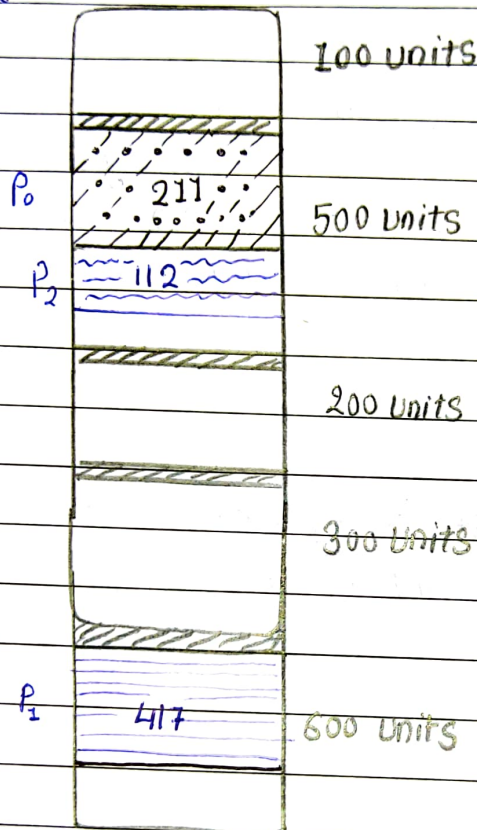 100 units
P₀ 211 500 units
P₂ 112
200 units
300 units
P₁ 417 600 units